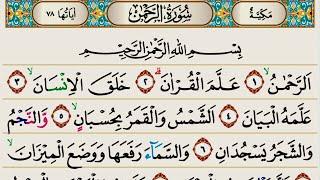 مَكِّيَّة سُورَةُ الرَّحْمٰن اٰيَاتُهَا ٧٨
بِسْمِ اللّٰهِ الرَّحْمٰنِ الرَّحِيْمِ
اَلرَّحْمٰنُ ۙ ١ عَلَّمَ الْقُرْاٰنَ ۗ ٢ خَلَقَ الْاِنْسَانَ ۙ ٣
عَلَّمَهُ الْبَيَانَ ٤ اَلشَّمْسُ وَالْقَمَرُ بِحُسْبَانٍ ۙ ٥ وَّالنَّجْمُ
وَالشَّجَرُ يَسْجُدَانِ ٦ وَالسَّمَآءَ رَفَعَهَا وَوَضَعَ الْمِيْزَانَ ۙ